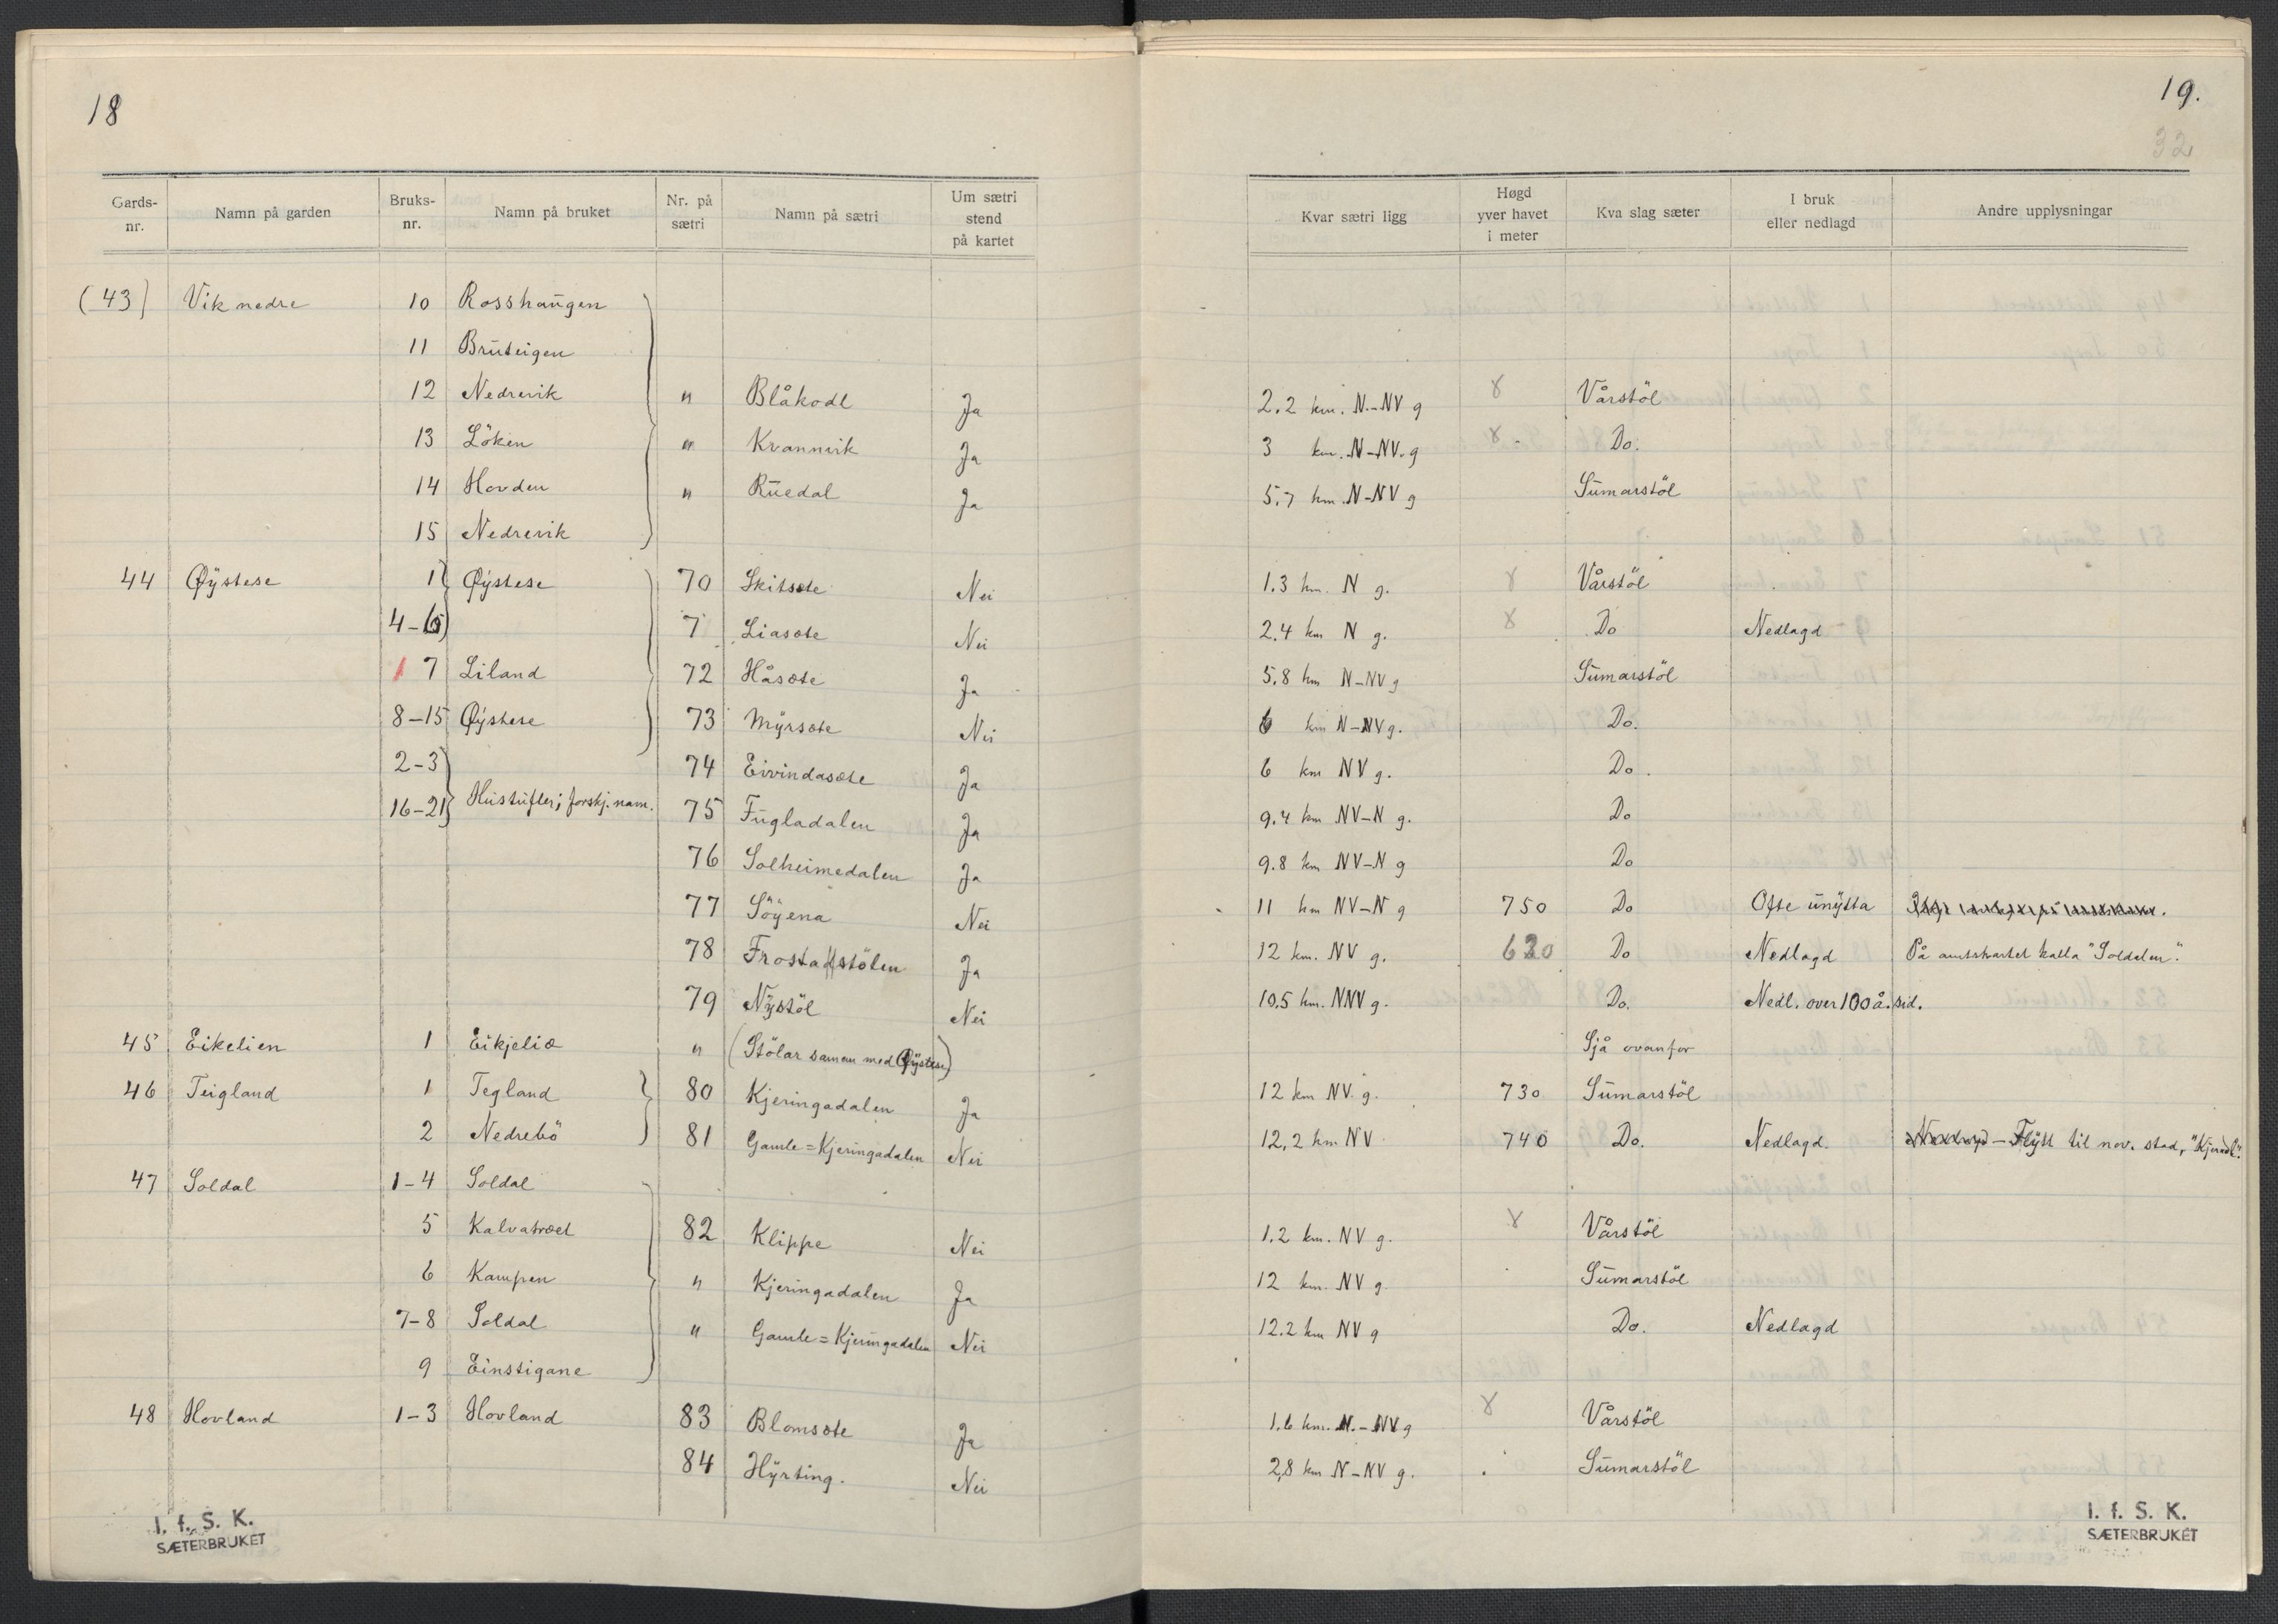 18
Gards-nr. Namn på garden Bruks-nr. Namn på bruket Nr. på sætri Namn på sætri Um sætri stend på kartet
(43) Vik nedre 10 Rosshaŭgen
11 Brŭteigen
12 Nedrevik " Blåkodl Ja
13 Löken " Kvannvik Ja
14 Hovden " Rŭedal Ja
15 Nedrevik
44 Øystese 1 Øystese 70 Skitsete Nei
4-6 7 Liasete Nei
7 Liland 72 Håsete Ja
8-15 Øystese 73 Myrsete Nei
2-3 74 Eivindasete Ja
16-21 Hŭstŭfter; forskj. nam. 75 Fŭgladalen Ja
76 Solheimedalen Ja
77 Söyena Nei
78 Frostastölen Ja
79 Nystöl Nei
45 Eikelien 1 Eikjelid " (Stölar saman med Øystese)
46 Teigland 1 Tegland 80 Kjeringadalen Ja
2 Nedrebö 81 Gamle=Kjeringadalen Nei
47 Soldal 1-4 Soldal
5 Kalvatræet 82 Klippe Nei
6 Kampen " Kjeringadalen Ja
7-8 Soldal " Gamle=Kjeringadalen Nei
9 Einstigane
48 Hovland 1-3 Hovland 83 Blomsete Ja
84 Hyrting. Nei
I. f. S. K.
SÆTERBRUKET
19.
32
Kvar sætri ligg Høgd yver havet i meter Kva slag sæter I bruk eller nedlagd Andre upplysningar
2.2 km. N.-NV g 8 Vårstöl
3 km. N-NV. g 8 - Do.
5.7 km. N-NV g Sŭmarstöl
1.3 km. N g. 8 Vårstöl
2.4 km N g. 8 Do Nedlagd
5.8 km N-NV g Sŭmarstöl
6 km N-NV g. Do.
6 km NV g. Do.
9.4 km NV-N g. Do
9.8 km NV-N g Do
11 km NV-N g 750 Do Ofte ŭnytta
12 km. NV g. 620 Do Nedlagd På amtskartet kalla "Soldalen".
10.5 km. NNV g. Do. Nedl. over 100 å. sid.
Sjå ovanfor
12 km NV. g. 730 Sŭmarstöl
12,2 km NV 740 Do. Nedlagd. - Flytt til nov. stad,
1.2 km. NV g. 8 Vårstöl
12 km. NV g. Sŭmarstöl
12.2 km NV g Do. Nedlagd
1.6 km. N.-NV g 8 Vårstöl
2,8 km N-NV g. Sŭmarstöl
I. f. S. K.
SÆTERBRUKET